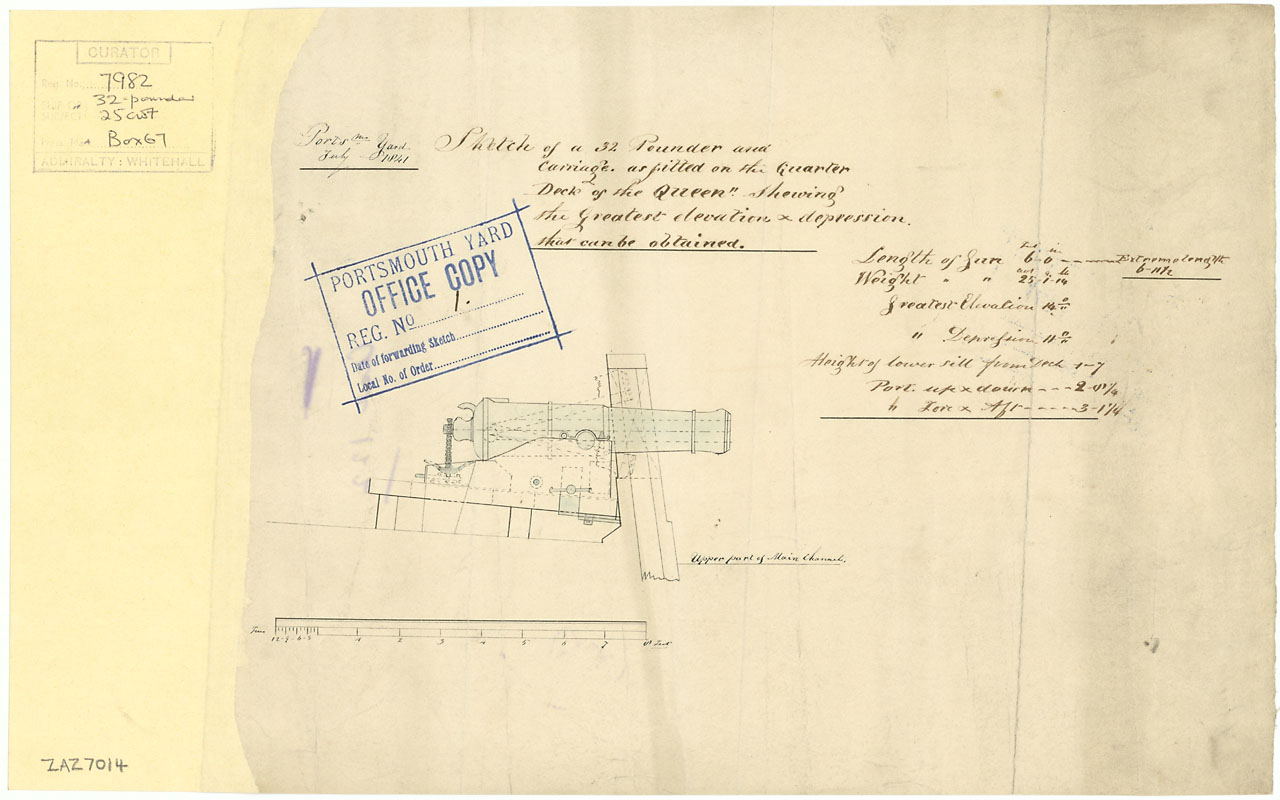 CURATOR
Reg. No. 7982
" 32-pounder
25 cwt
Box 67
ADMIRALTY: WHITEHALL
Portsmo Yard
July 1841
Sketch of a 32 Pounder and
Carriage. as fitted on the Quarter
Deck of the Queen". Shewing
the Greatest elevation & depression.
that can be obtained.
PORTSMOUTH YARD
OFFICE COPY
REG. No 1.
Date of forwarding Sketch
Local No. of Order
Length of Gun 6-0 Extreme length
Weight " " 25-1-14
Greatest Elevation 14°
" Depression 11°
Height of lower sill from deck 1-7
Port. up & down
" Fore & Aft 3-1 1/4
Upper part of Main Channel.
12 9 6 3 1 2 3 4 5 6 7 8 Feet
ZAZ7014